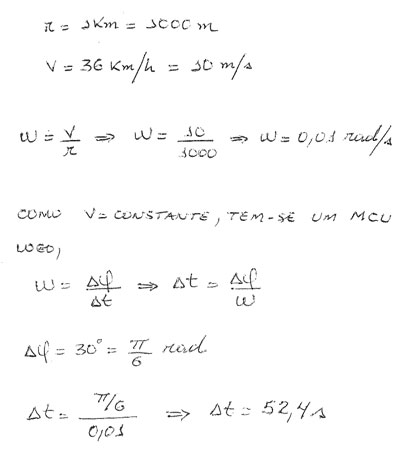 r = 1Km = 1000 m
V = 36 Km/h = 10 m/s
ω = V/r ⇒ ω = 10/1000 ⇒ ω = 0,01 rad/s
COMO V = CONSTANTE, TEM-SE UM MCU
LOGO,
ω = Δφ/Δt ⇒ Δt = Δφ/ω
Δφ = 30° = π/6 rad
Δt = π/6/0,01 ⇒ Δt = 52,4 s